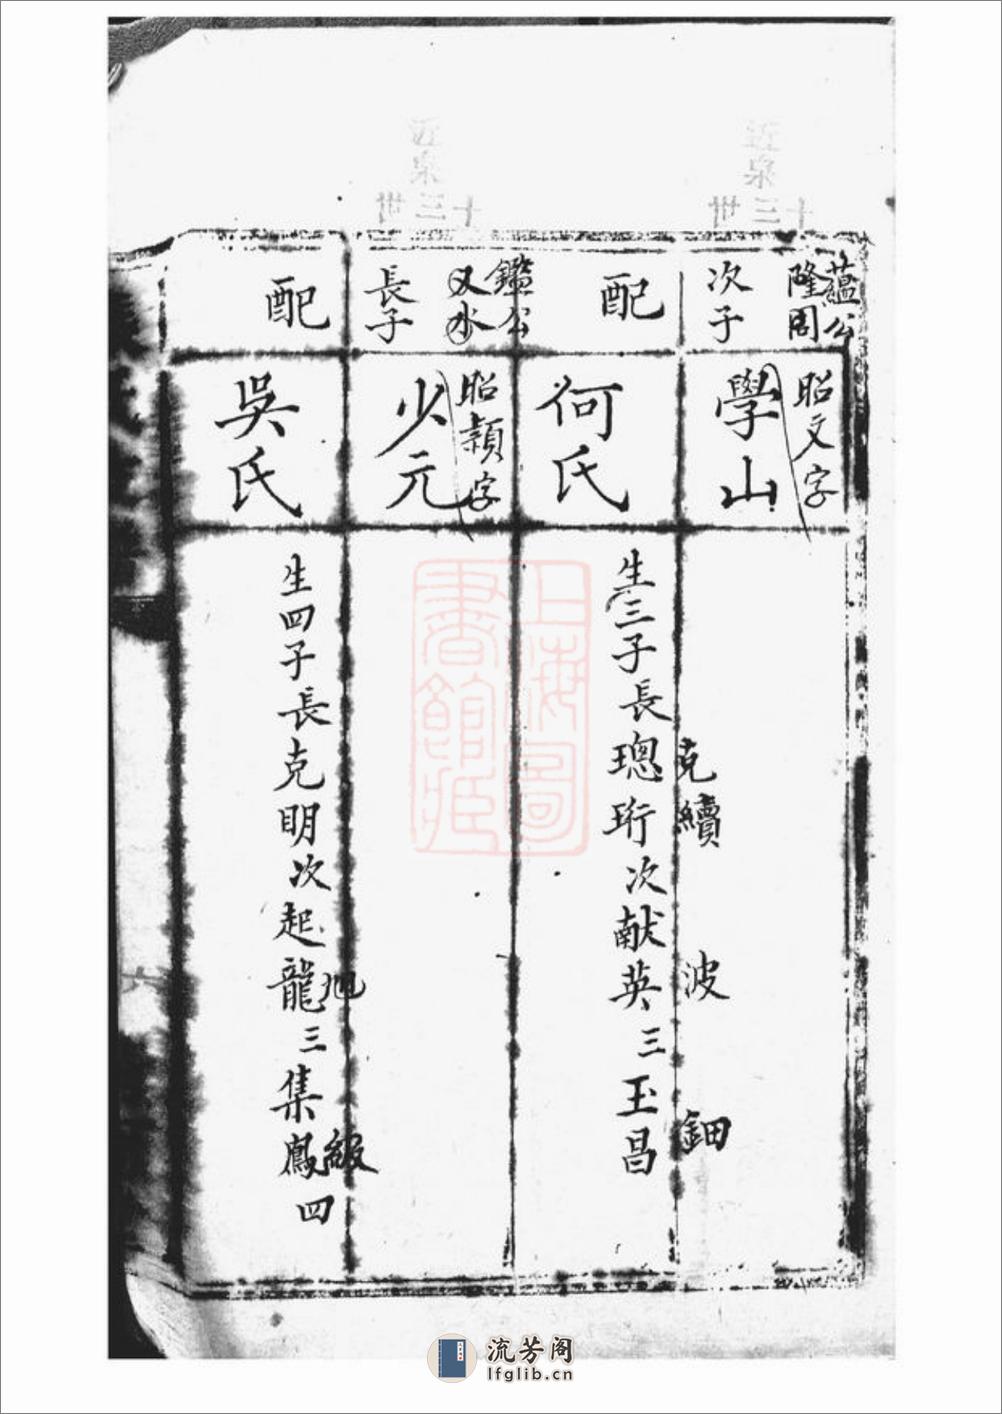 蘊公
隆周
次子
昭文字
學山
克續
波
鈿
配
何氏
生三子長璁珩次献英三玉昌
鑑公
又水
長子
昭穎字
少元
配
吳氏
旭
級
生四子長克明次起龍三集鳳四
近泉
十三世
近泉
十三世
上海圖書館藏
流芳阁
lfglib.cn